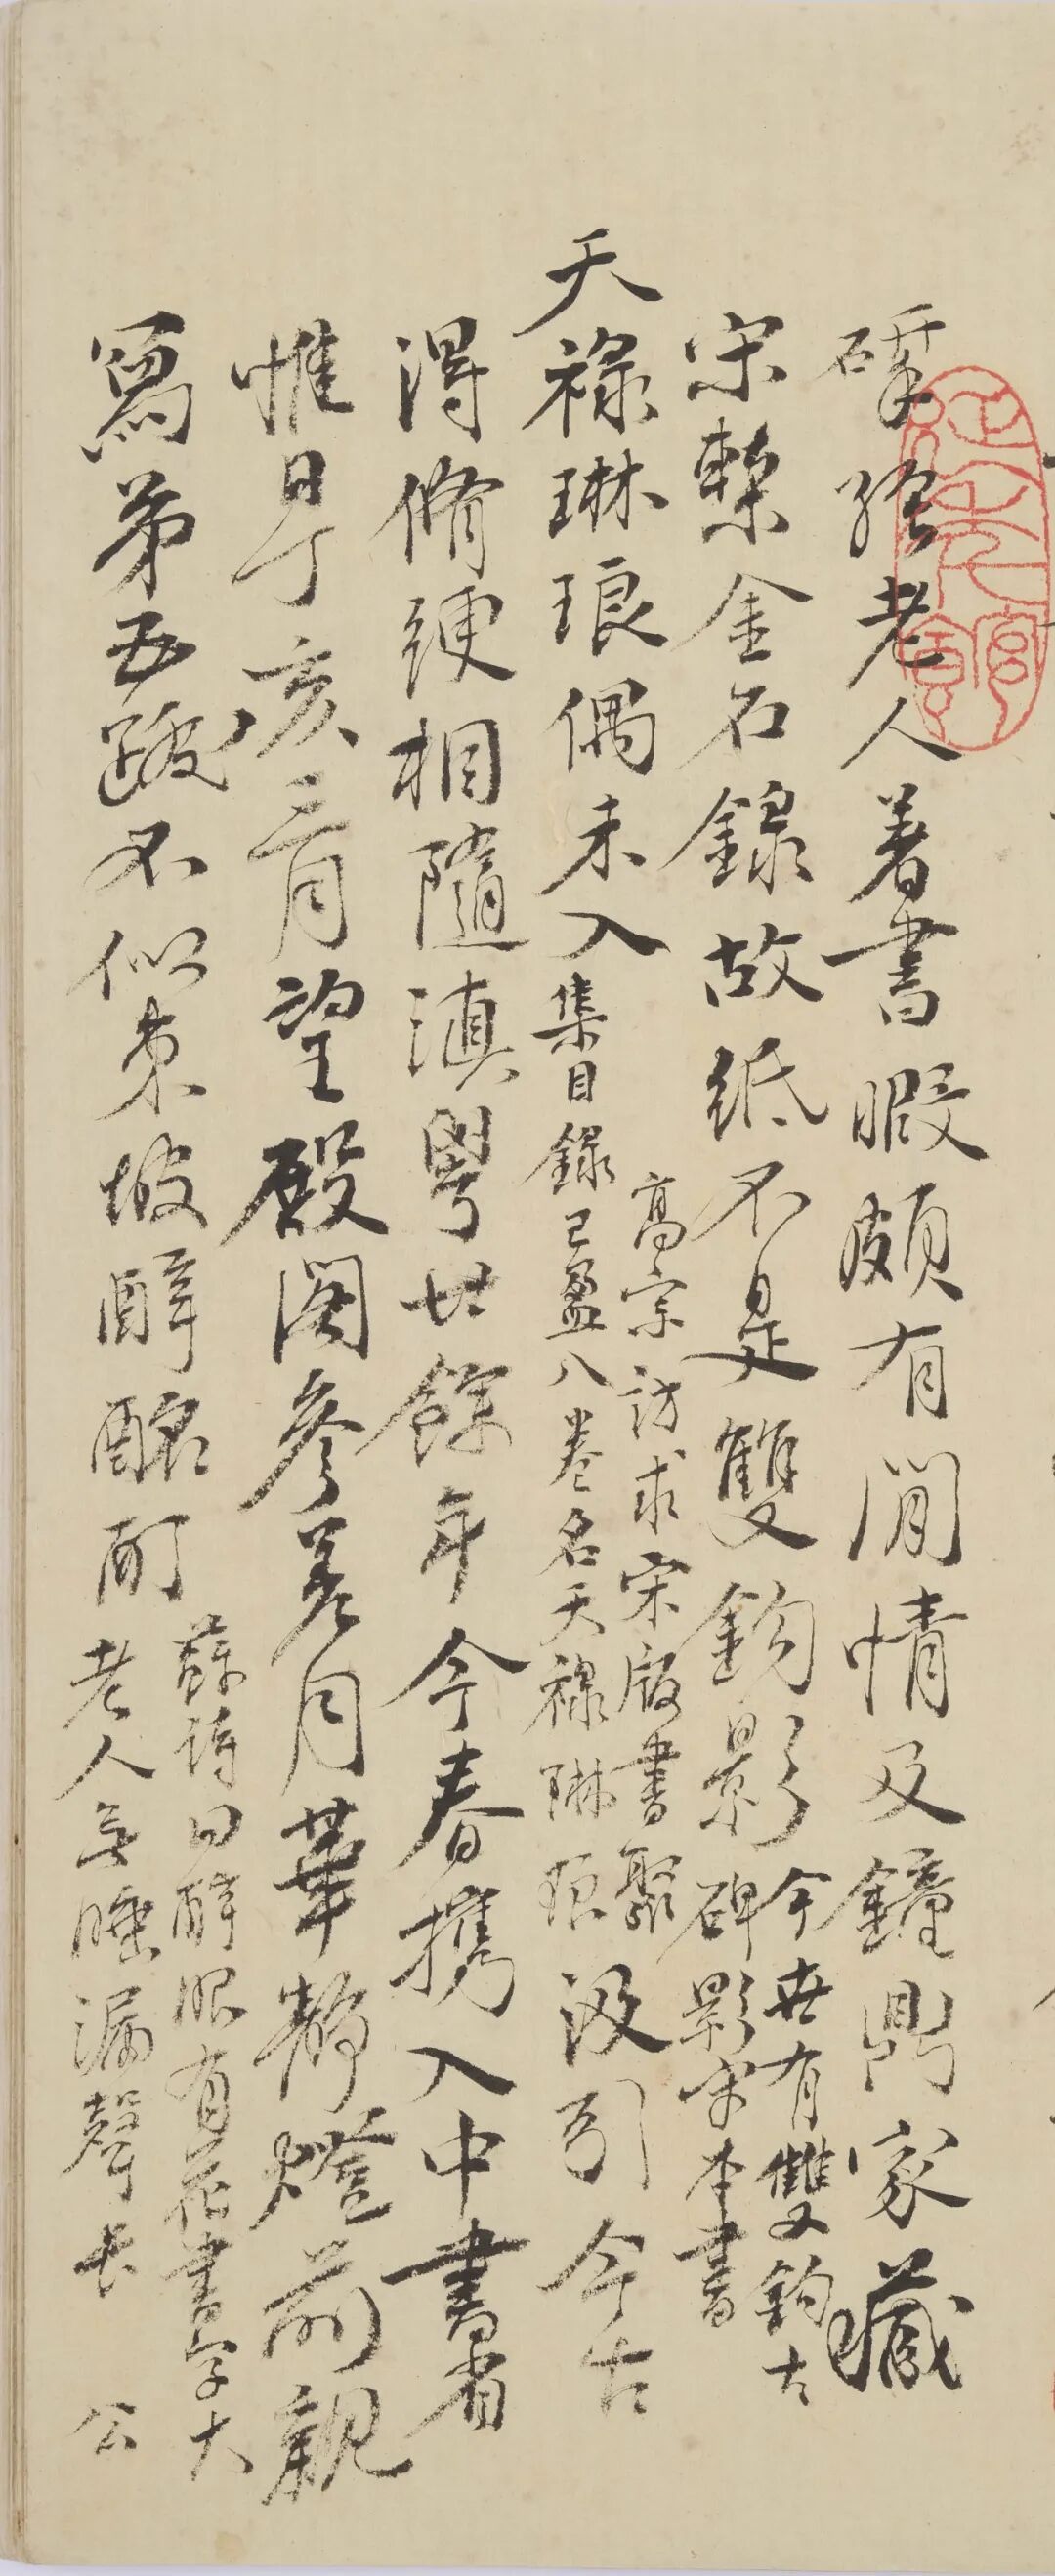 揅經老人著書暇頗有閒情及鐘鼎家藏
宋槧金石錄故紙不是雙鉤影
今世有雙鉤古
碑影宋本書
天祿琳琅偶未入
高宗訪求宋版書聚
集目錄已盈八卷名天祿琳琅
汲引今古
得脩綆相隨滇粤廿餘年今春攜入中書省
惟日丁亥三月望殿閣參差月華靜燈前親
寫第五跋不似東坡醉酩酊
蘇詩曰醉眼有花書字大
老人無睡漏聲長
公